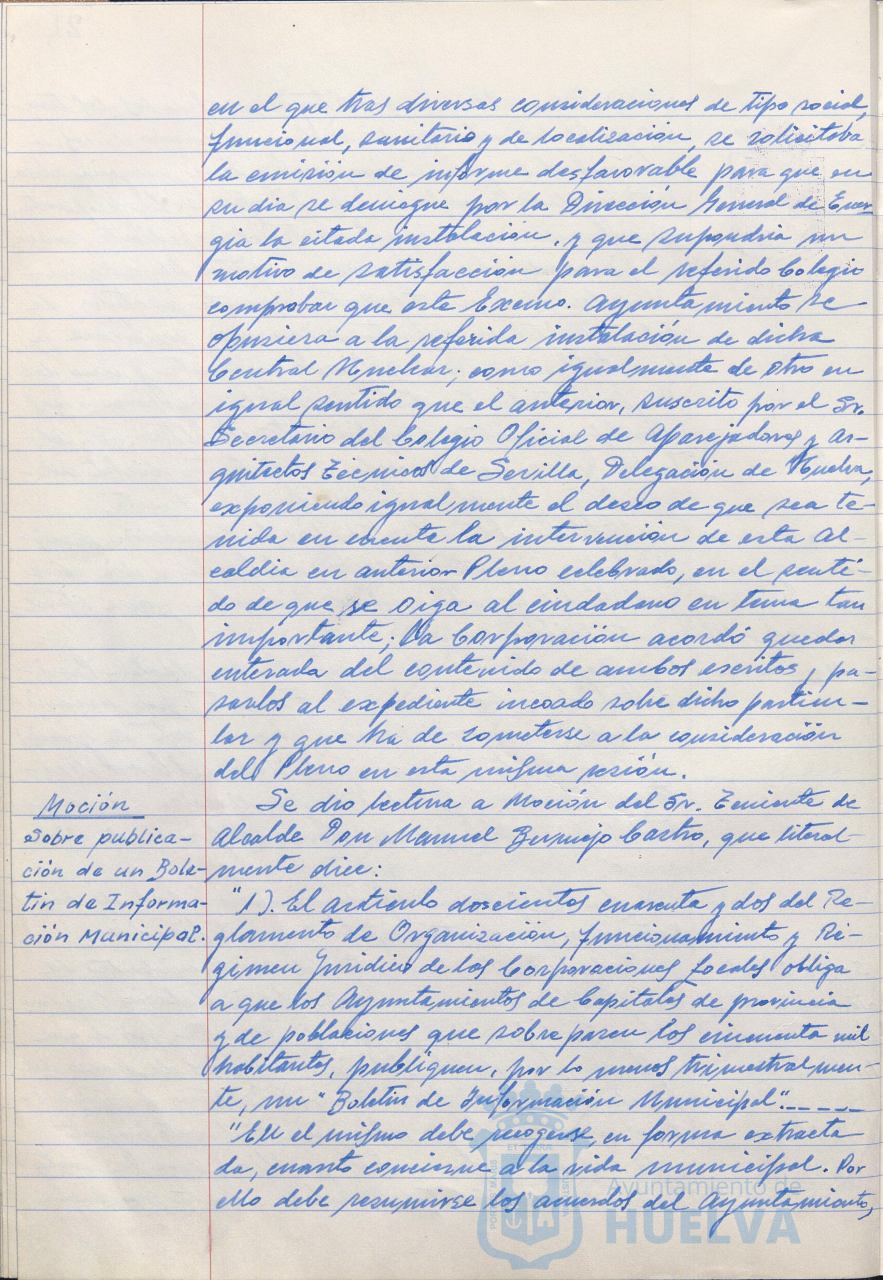 en el que tras diversas consideraciones de tipo social,
funcional, sanitario y de localización, se solicitaba
la emisión de informe desfavorable para que en
su dia se deniegue por la Dirección General de Ener-
gia la citada instalación, y que supondria un
motivo de satisfacción para el referido Colegio
comprobar que este Excmo. Ayuntamiento se
opusiera a la referida instalación de dicha
Central Nuclear; como igualmente de otro en
igual sentido que el anterior, suscrito por el Sr.
Secretario del Colegio Oficial de Aparejadores y Ar-
quitectos Técnicos de Sevilla, Delegación de Huelva,
exponiendo igualmente el deseo de que sea te-
nida en cuenta la intervención de esta Al-
caldia en anterior Pleno celebrado, en el senti-
do de que se oiga al ciudadano en tema tan
importante; la Corporación acordó quedar
enterada del contenido de ambos escritos, pa-
sarlos al expediente incoado sobre dicho particu-
lar y que ha de someterse a la consideración
del Pleno en esta misma sesión.
Moción
sobre publica-
ción de un Bole-
tin de Informa-
ción Municipal.
Se dio lectura a Moción del Sr. Teniente de
Alcalde Don Manuel Bermejo Castro, que literal-
mente dice:
"1). El artículo doscientos cuarenta y dos del Re-
glamento de Organización, funcionamiento y Ré-
gimen Jurídico de las Corporaciones Locales obliga
a que los Ayuntamientos de Capitales de provincia
y de poblaciones que sobrepasen los cincuenta mil
habitantes, publiquen, por lo menos trimestralmen-
te, un "Boletin de Información Municipal".-----
"En el mismo debe recogerse, en forma extracta
da, cuanto concierne a la vida municipal. Por
ello debe resumirse los acuerdos del Ayuntamiento,
Ayuntamiento de
HUELVA